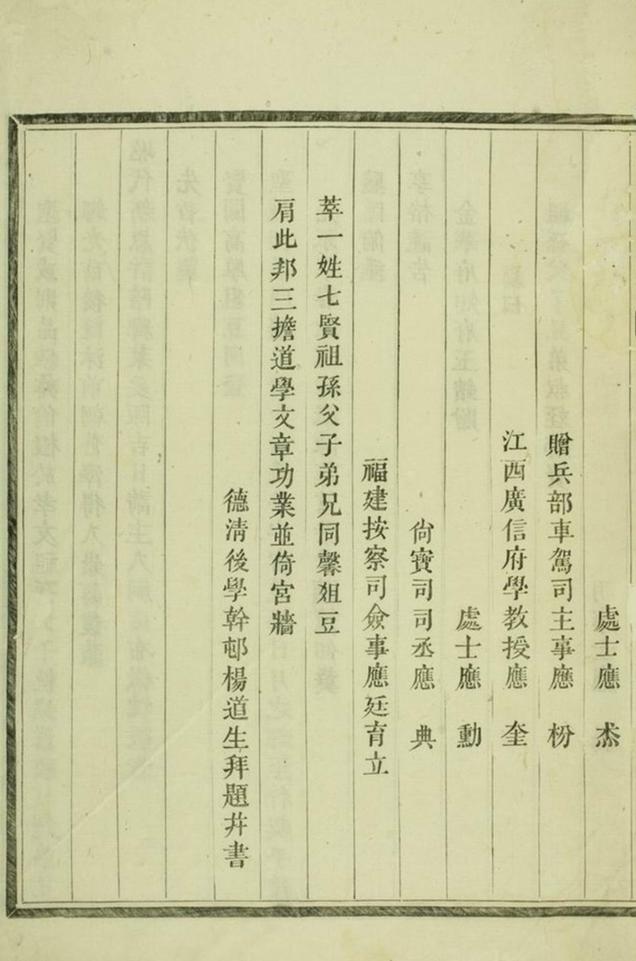 處士應　杰
贈兵部車駕司主事應　枌
江西廣信府學教授應　奎
處士應　勳
尙寳司司丞應　典
福建按察司僉事應廷育立
萃一姓七賢祖孫父子弟兄同馨爼豆
肩此邦三擔道學文章功業並倚宮牆
德淸後學幹邨楊道生拜題幷書